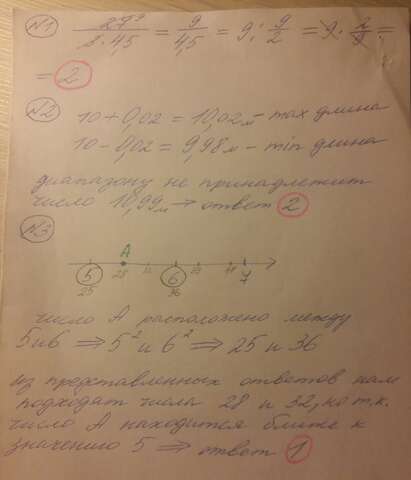 №1 27⁹/3·4,5 = 9/4,5 = 9 : 9/2 = 9 · 2/9 =
= 2
№2 10+0,02 = 10,02м - max длина
10-0,02 = 9,98м - min длина
диапазону не принадлежит
число 10,99м → ответ 2
№3
A
5 6 7
25 28 36
число A расположено между
5 и 6 ⇒ 5² и 6² ⇒ 25 и 36
из представленных ответов нам
подходят числа 28 и 32, но т.к.
число A находится ближе к
значению 5 ⇒ ответ 1